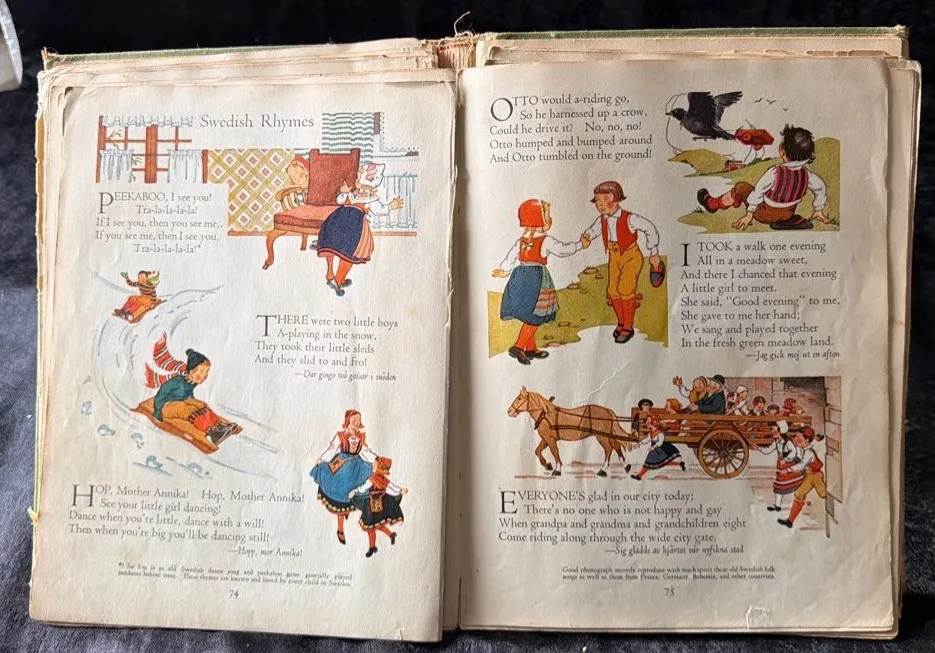 Swedish Rhymes
PEEKABOO, I see you!
Tra-la-la-la-la!
If I see you, then you see me,
If you see me, then I see you,
Tra-la-la-la-la!*
THERE were two little boys
A-playing in the snow,
They took their little sleds
And they slid to and fro!
—Där gingo två gossar i snöden
HOP, Mother Annika! Hop, Mother Annika!
See your little girl dancing!
Dance when you're little, dance with a will!
Then when you're big you'll be dancing still!
—Hopp, mor Annika!
*I See You is an old Swedish dance song and peekaboo game generally played
outdoors behind trees. These rhymes are known and loved by every child in Sweden.
74
OTTO would a-riding go,
So he harnessed up a crow,
Could he drive it? No, no, no!
Otto humped and bumped around
And Otto tumbled on the ground!
I TOOK a walk one evening
All in a meadow sweet,
And there I chanced that evening
A little girl to meet.
She said, "Good evening" to me,
She gave to me her hand;
We sang and played together
In the fresh green meadow land.
—Jag gick mej ut en afton
EVERYONE'S glad in our city today;
There's no one who is not happy and gay
When grandpa and grandma and grandchildren eight
Come riding along through the wide city gate.
—Sig gladde av hjärtat vår nyfikna stad
Good phonograph records reproduce with much spirit these old Swedish folk
songs as well as those from France, Germany, Bohemia, and other countries.
75